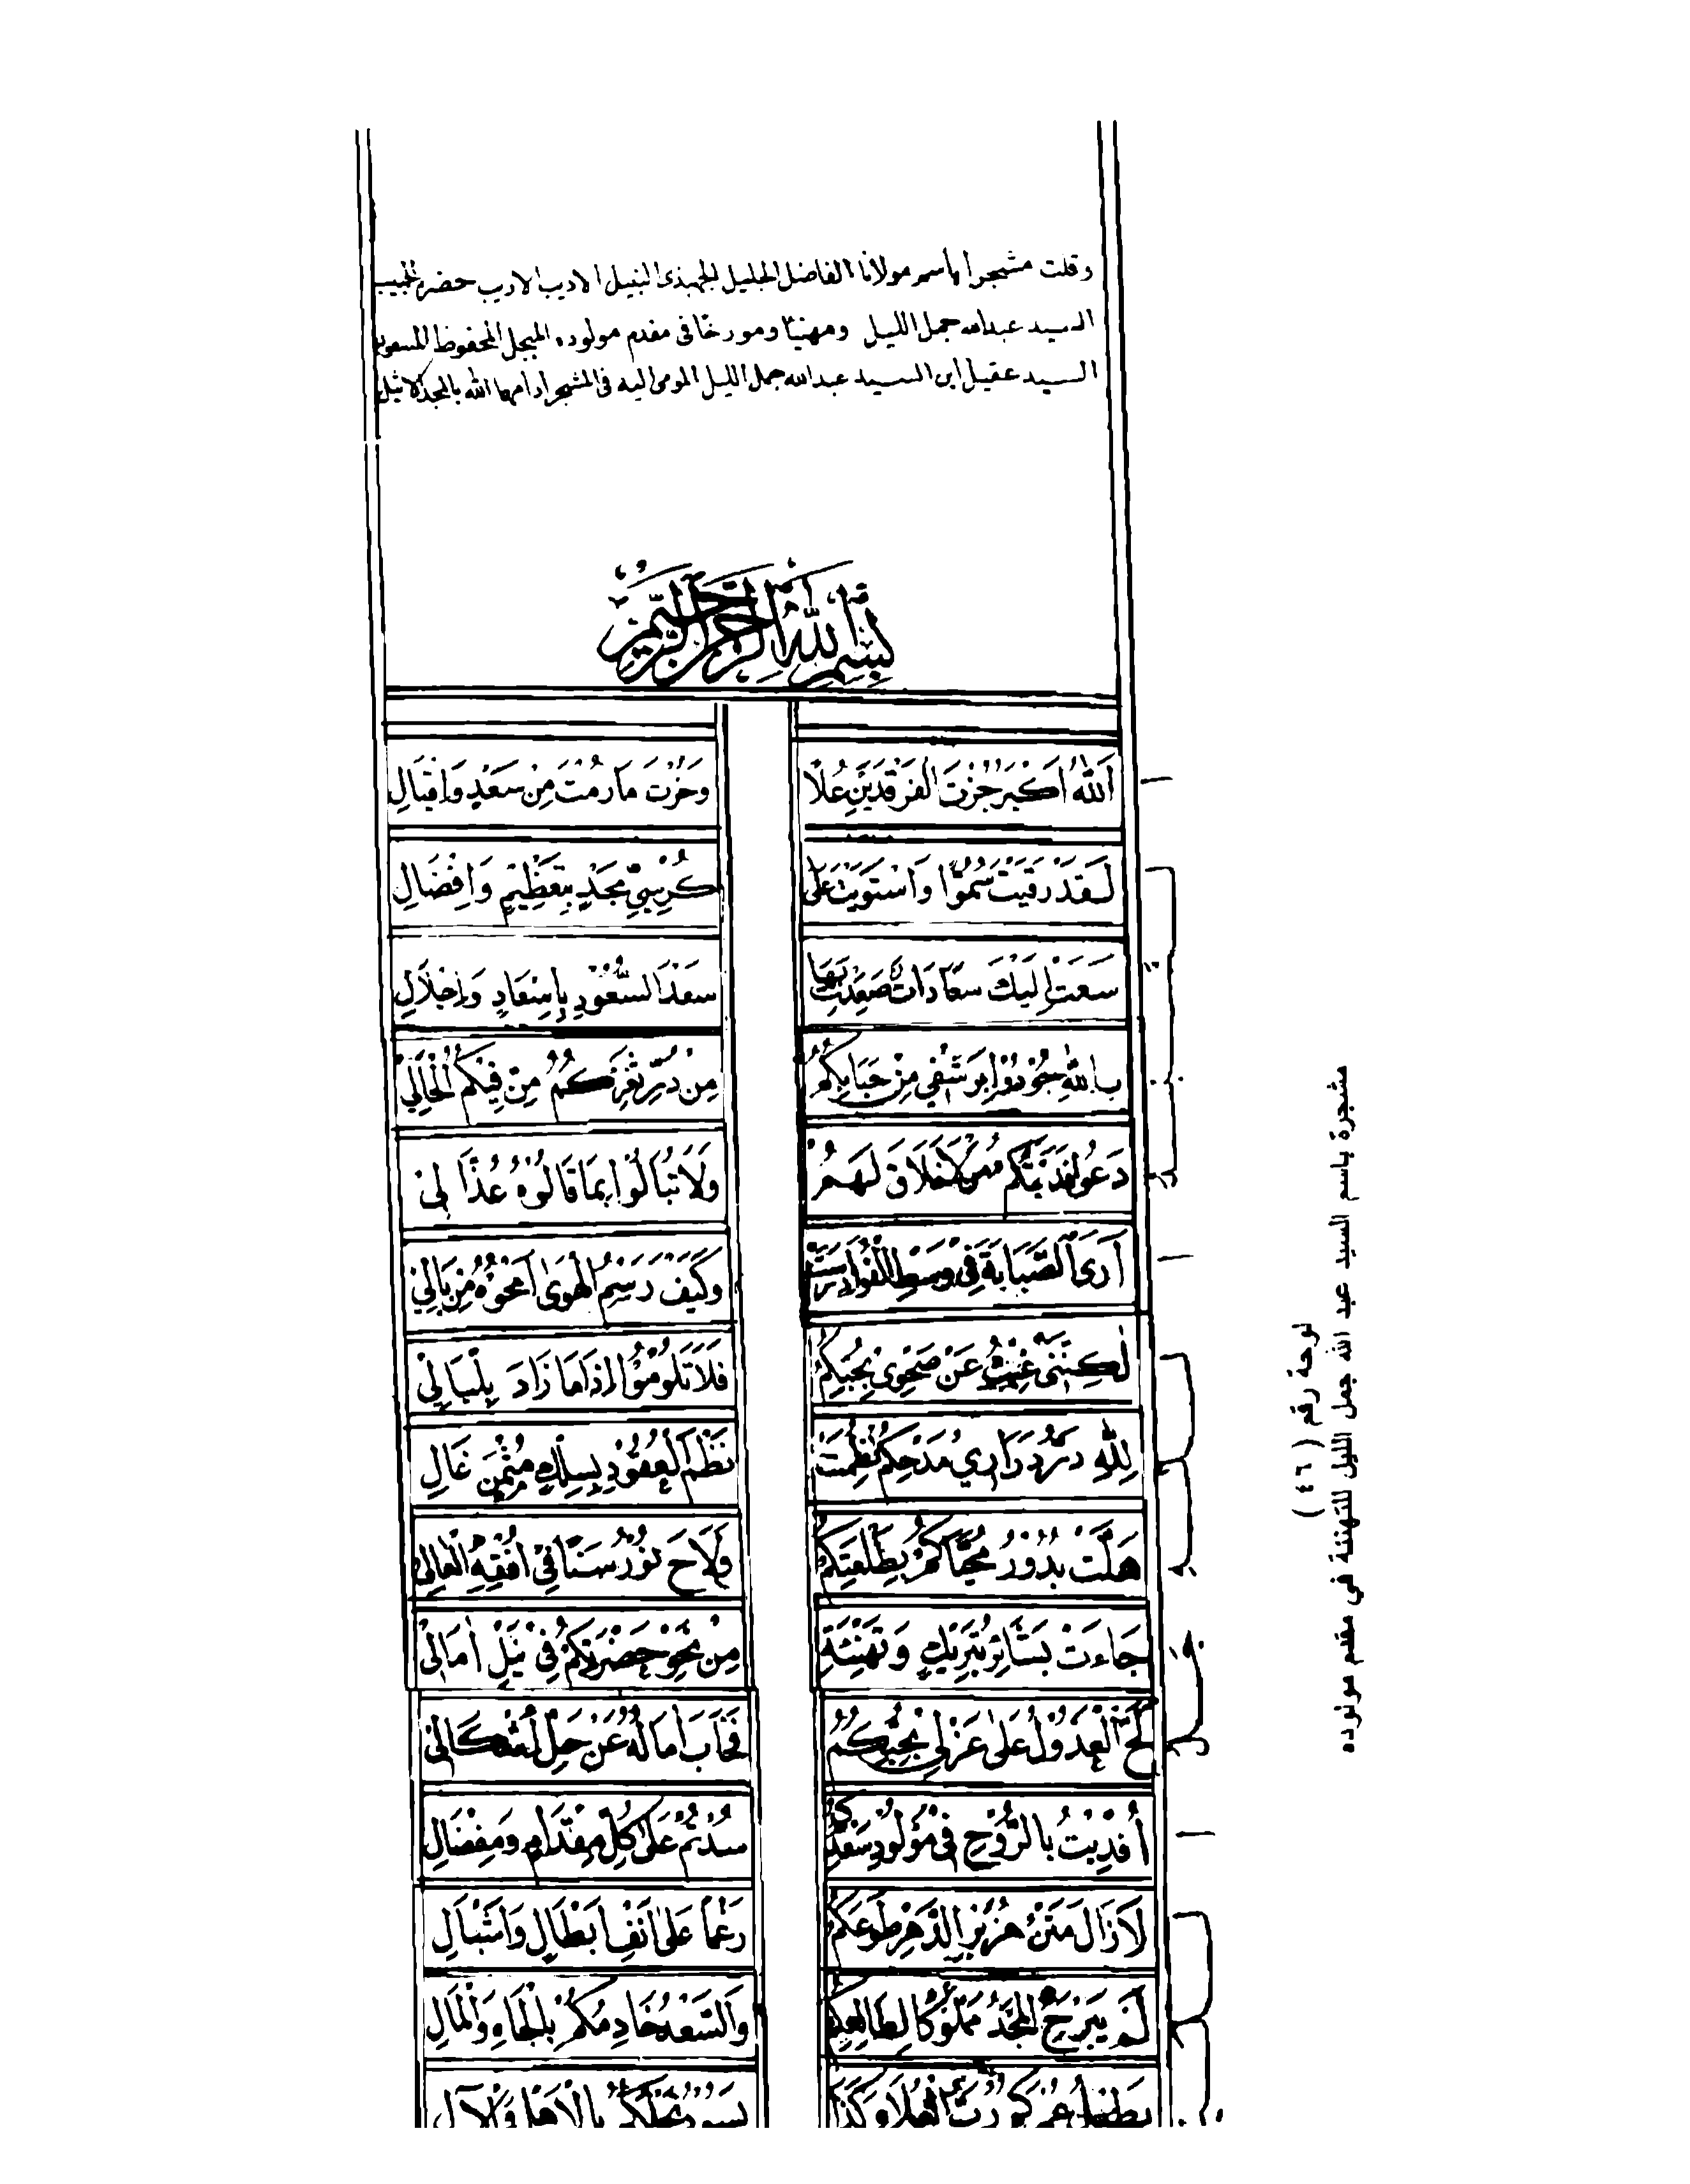 وقلت مشجرا باسم مولانا الفاضل الجليل الجهبذى النبيل الاديب الاريب حضرة الحبيب
السيد عبدالله جمل الليل ومهنيّا ومورخا فى مقدم مولوده المبجل المحفوظ المسعود
السيد عقيل ابن السيد عبدالله جمل الليل المومى اليه فى المشجر ادامهما الله بالمجد
بِسْمِ اللهِ الرَّحْمنِ الرَّحِيْمِ
اَللهُ اَكْبَرْ جُزْتَ الْفَرْقَدَيْنِ عُلَاً وَحُزْتَ مَا رُمْتَ مِنْ سَعْدٍ وَاِقْبَالِ
لَقَدْ رَقَيْتَ سُمُوًّا وَاسْتَوَيْتَ عَلَى كُرْسِيِّ مَجْدٍ بِتَعْظِيْمٍ وَاِفْضَالِ
سَعَتْ اِلَيْكَ سَعَادَاتٌ صَعِدْتَ بِهَا سَعْدَ السُّعُوْدِ بِاِسْعَادٍ وَاِجْلَالِ
بِاللهِ جُوْدُوْا بِرَشْفِي مِنْ حَبَابِكُمُ مِنْ دُرِّ ثَغْرِكُمُ مِنْ فِيْكُمُ الْحَالِيْ
دَعُوا لِمَنْ لَا خَلَاقَ لَهُمْ وَلَا تُبَالُوْا بِمَا قَالُوْهُ عُذَّالِيْ
اَرَى الصَّبَابَةَ فِيْ وَسْطِ الْفُوَادِ رَسَتْ وَكَيْفَ رَسْمُ الْهَوَى اَمْحُوْهُ مِنْ بَالِيْ
لٰكِنَّنِيْ غِبْتُ عَنْ صَحْوِيْ بِحُبِّكُمُ فَلَا تَلُوْمُوْا اِذَا مَا زَادَ بِلْبَالِيْ
لِلّٰهِ دَرُّ دَرَارِيْ مَدْحِكُمْ نُظِمَتْ نَظْمَ الْعُقُوْدِ بِسِلْكٍ مُثْمَنٍ غَالِ
هَلَّتْ بُدُوْرُ مُحَيَّاكُمْ بِطَلْعَتِكُمْ وَلَاحَ نُوْرُ سَنَاً فِيْ اُفْقِهِ الْعَالِيْ
جَاءَتْ بَشَائِرُ تَبْرِيْكٍ وَتَهْنِئَةٍ مِنْ نَحْوِ حَضْرَتِكُمْ فِيْ نَيْلِ اٰمَالِيْ
لَحَّ الْعَذُوْلُ عَلَى عَزْلِيْ بِحُبِّكُمُ فَخَابَ اٰمَالُهُ عَنْ حَلِّ اَشْكَالِيْ
اُفْدِيْتُ بِالرُّوْحِ فِيْ مَوْلُوْدِ سَعْدِكُمُ سُدْتُمْ عَلَى كُلِّ مِقْدَامٍ وَمِفْضَالِ
لَازَالَ مَتْنُ هُزَبْرِ الدَّهْرِ طَوْعَكُمُ رَغْمًا عَلَى اَنْفِ اَبْطَالٍ وَاَشْبَالِ
لَمْ يَبْرَحِ الْمَجْدُ مَمْلُوْكًا لِطَالِعِكُمْ وَالسَّعْدُ خَادِمُكُمْ بِالْجَاهِ وَالْمَالِ
لوحة رقم (٤٦)
مشجرة باسم السيد عبد الله جمل الليل للتهنئة في مقدم مولوده